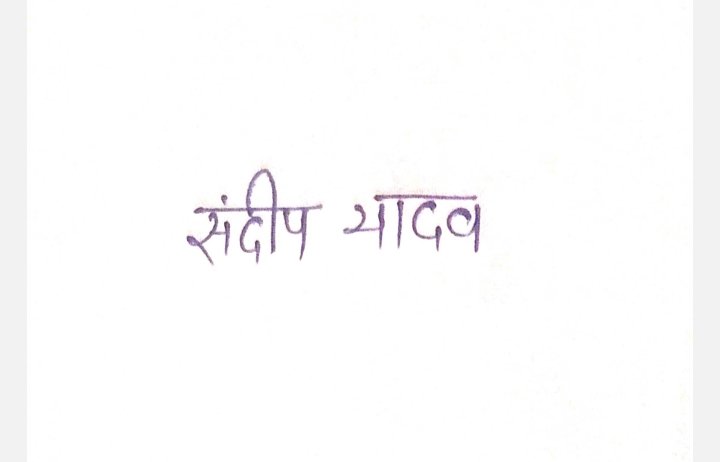 संदीप यादव